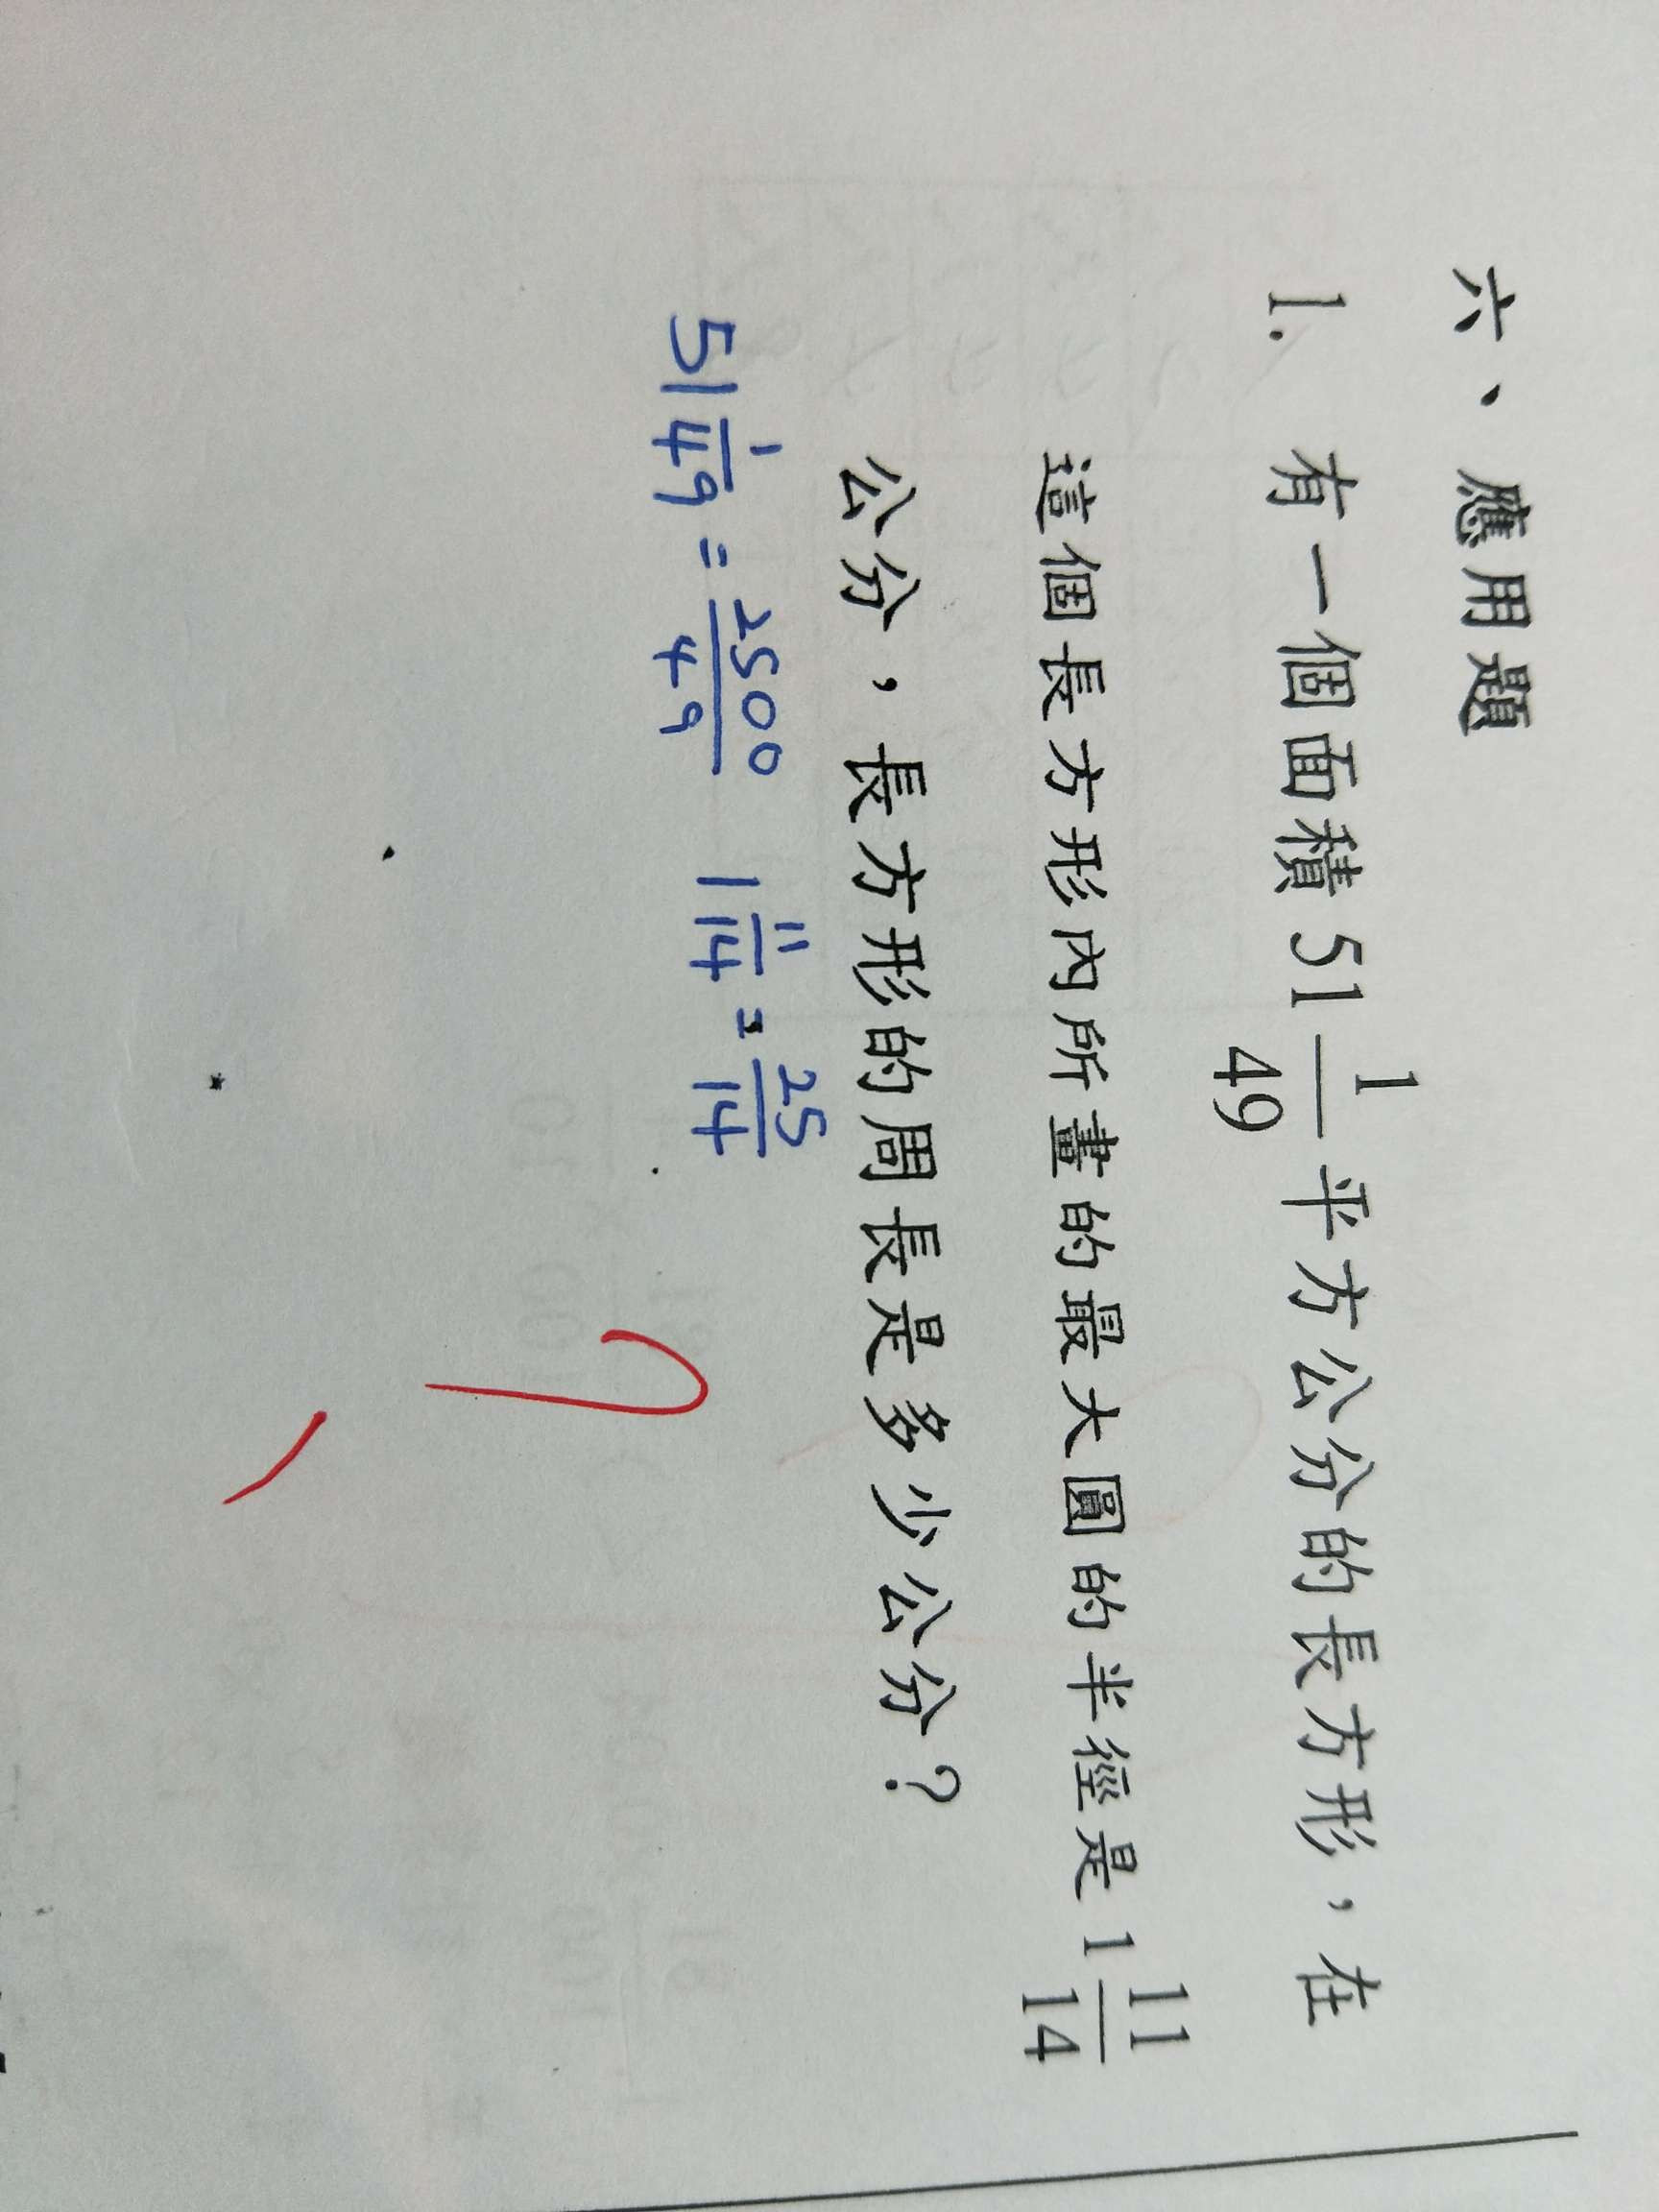 六、應用題
1. 有一個面積 51 1/49 平方公分的長方形，在
這個長方形內所畫的最大圓的半徑是 1 11/14
公分，長方形的周長是多少公分？
51 1/49 = 2500/49 1 11/14 = 25/14